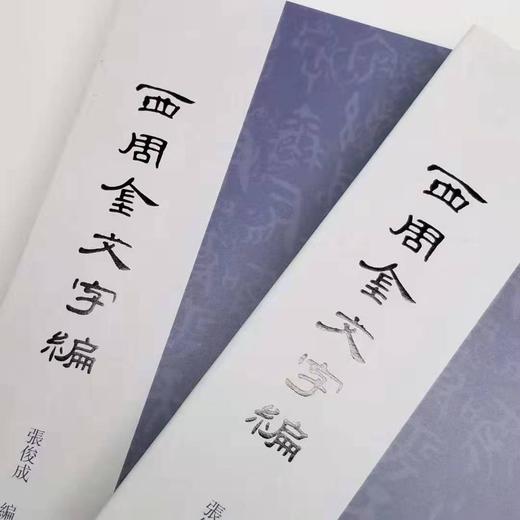 西周金文字編
張俊成 編
西周金文字編
張俊